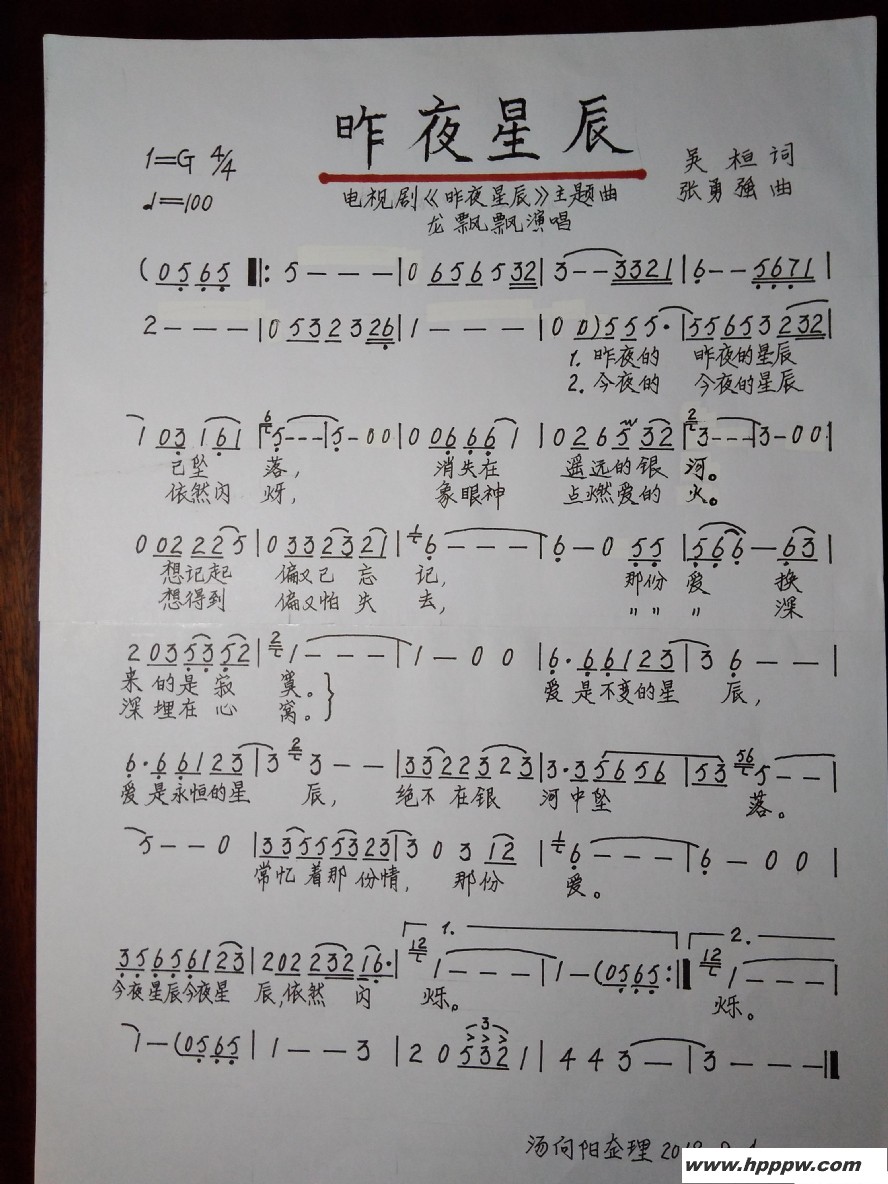 昨夜星辰
1=G 4/4
♩=100
吴桓词
张勇强曲
电视剧《昨夜星辰》主题曲
龙飘飘演唱
(0565 ‖: 5 - - - | 0 6565 32 | 3 - - 3321 | 6 - - 5671 |
2 - - - | 0 5323 26 | 1 - - - | 0 0) 5 5 5· | 5 5 6 5 3 2 32 |
1. 昨夜的 昨夜的星辰
2. 今夜的 今夜的星辰
1 03 1 61 | 6 5 - - - | 5 - 0 0 | 0 0 6 6 6 1 | 0 2 6 5 32 | 2 3 - - - | 3 - 0 0 |
已坠 落, 消失在 遥远的银 河。
依然闪 烁, 象眼神 点燃爱的 火。
0 02 2 2 5 | 0 3 3 2 3 2 1 | 1 6 - - - | 6 - 0 5 5 | 5 6 6 - 6 3 |
想记起 偏又已 忘 记, 那份 爱 换
想得到 偏又怕 失 去, 〃 〃 〃 深
2 0 3 5 3 5 2 | 2 1 - - - | 1 - 0 0 | 6· 6 6 1 2 3 | 3 6 - - |
来的是寂 寞。} 爱是不变的星 辰,
深埋在心 窝。
6· 6 6 1 2 3 | 3 2 3 - - | 3 3 2 2 3 2 3 | 3· 3 5 6 5 6 | 5 3 56 5 - - |
爱是永恒的星 辰, 绝不在银 河中坠 落。
5 - - 0 | 3 3 5 5 5 3 2 3 | 3 0 3 12 | 1 6 - - - | 6 - 0 0 |
常忆着那份情, 那份 爱。
1. 2.
3 5 6 5 6 1 2 3 | 2 0 2 2 32 1 6· | 12 1 - - - | 1 - (0565 :‖ 12 1 - - - |
今夜星辰今夜星 辰,依然 闪 烁。 烁。
3
1 - (0565 | 1 - - 3 | 2 0 532 1 | 4 4 3 - | 3 - - - ‖
汤向阳整理
www.hpppw.com